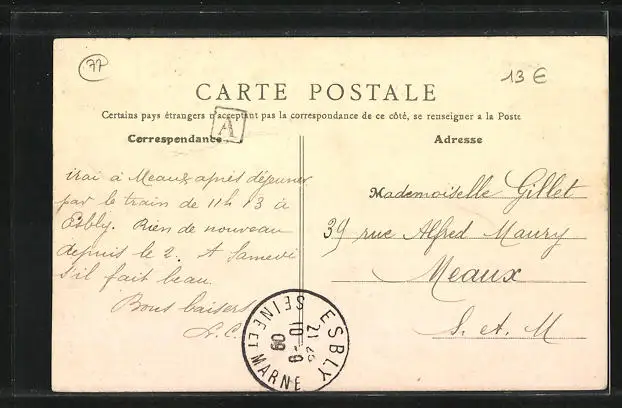 77
13 €
CARTE POSTALE
Certains pays étrangers n'acceptent pas la correspondance de ce côté, se renseigner a la Poste
A
Correspondance
Adresse
irai à Meaux après déjeuner
par le train de 11h 13 à
Esbly. Rien de nouveau
depuis le 2. A Samedi
s'il fait beau.
Bons baisers
A. C.
Mademoiselle Gillet
39 rue Alfred Maury
Meaux
S. et. M
ESBLY
21
10 -9
09
SEINE ET MARNE